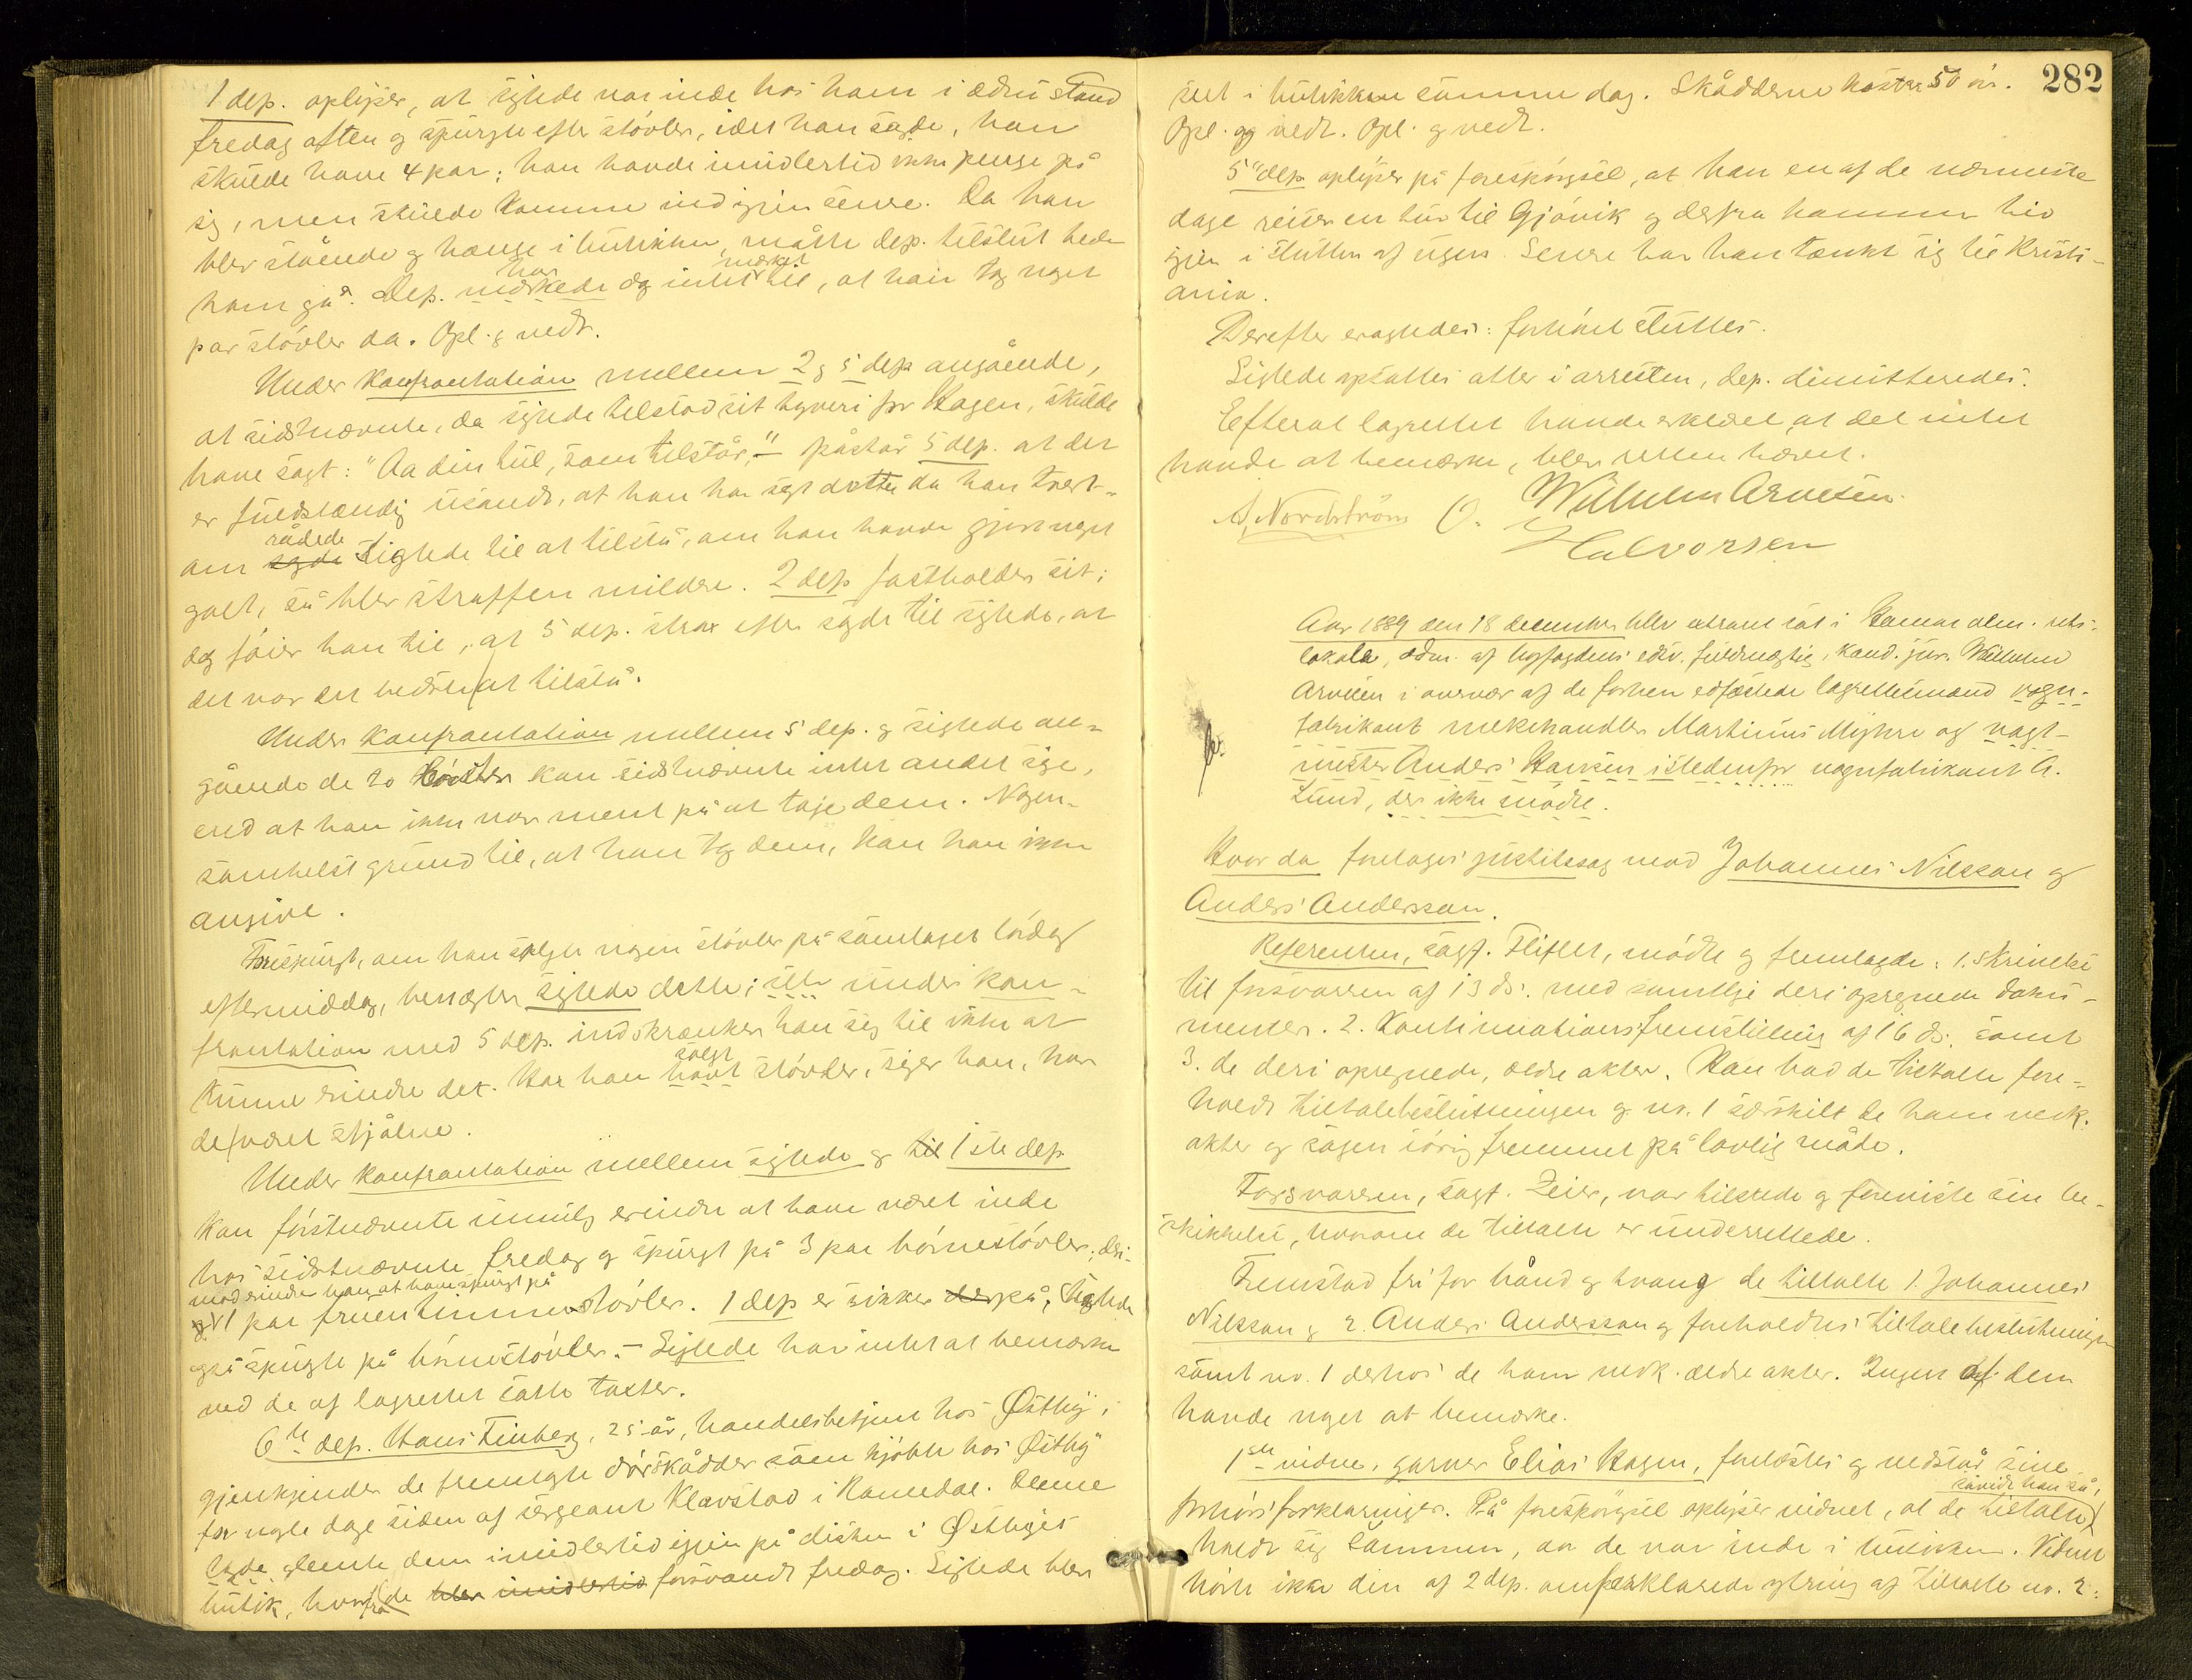 1 dep. oplyser, at sigtede var inde hos ham i ædru stand
fredag aften og spurgte efter støvler, idet han sagde, han
skulde have 4 par; han havde imidlertid ikke penge på
sig, men skulde komme ind igjen senere. Da han
blev stående og hænge i butikken, måtte dep. tilslut bede
ham gå. Dep. har mærkede og intet mærket til, at han tog noget
par støvler da. Opl. & vedt.
Under konfrontation mellem 2 & 5 dep angående,
at sidstnævnte, da sigtede tilstod sit tyveri for Hagen, skulde
have sagt: "Aa din tul, som tilstår," påstår 5 dep. at det
er fuldstændig usandt, at han har sagt dette da han tvert-
om sagde rådede sigtede til at tilstå, om han havde gjort noget
galt, så blev straffen mildere. 2 dep fastholder sit;
dog føier han til, at 5 dep. strax efter sagde til sigtede, at
det var det bedste at tilstå.
Under konfrontation mellem 5 dep. og sigtede an-
gående de to kan sidstnævnte intet andet sige,
end at han ikke var ment på at tage dem. Nogen-
somhelst grund til, at han tog dem, kan han ikke
angive.
Forespurgt, om han solgte nogen støvler på samlaget lørdag
eftermiddag, benægter sigtede dette; under kon-
frontation med 5 dep. indskrænker han sig til ikke at
kunne erindre det. Har han havt solgt støvler, siger han, har
de været stjålne.
Under konfrontation mellem sigtede og til 1ste dep
kan førstnævnte umulig erindre at have været inde
hos sidstnævnte fredag og spurgt på 3 par børnestøvler; der-
mod erindrer han at have spurgt på
og 1 par fruentimmerstøvler. 1 dep er sikker derpå, sigtede
også spurgte på børnestøvler. – Sigtede har intet at bemærke
ved de af lagrettet satte taxter.
6te dep. Hans Finberg, 25 år, handelsbetjent hos Østby,
gjenkjender de fremlagte dørskådder som kjøbte hos Østby
for nogle dage siden af sergeant Klævstad i Romedal. Denne
glemte dem imidlertid igjen på disken i Østbyes
butik, hvorfra de blev imidlertid forsvandt fredag. Sigtede blev
282
seet i butikken samme dag. Skådderne koster 50 øre.
Opl. og vedt. Opl. & vedt.
5te dep oplyser på forespørgsel, at han en af de nærmeste
dage reiser en tur til Gjøvik og derfra kommer hid
igjen i slutten af ugen. Senere har han tænkt sig til Kristi-
ania.
Derefter eragtedes: forhøret sluttes.
Sigtede opsattes atter i arresten, dep. dimitteredes.
Efterat lagrettet havde erklæret, at det intet
havde at bemærke, blev retten hævet.
A. Nordström O. Wilhelm Arnesen.
Halvorsen
Aar 1889 den 18 december blev extraret sat i Hamar alm. rets-
lokale, adm. af byfogdens edsv. fuldmægtig, kand. jur. Wilhelm
Arnesen i overvær af de forhen edfæstede lagrettesmænd vogn-
fabrikant melkehandler Martinius Myhre og vagt-
mester Anders Hansen istedenfor vognfabrikant A.
Lund, der ikke mødte.
Hvor da foretages justitssag mod Johannes Nilsson og
Anders Andersson.
Referenten, sagf. Fliflet, mødte og fremlagde: 1. skrivelse
til forsvareren af 13 ds. med samtlige deri opregnede doku-
menter. 2. Kontinuationsfremstilling af 16 ds. samt
3. de deri opregnede, ældre akter. Han bad de tiltalte fore-
holdt tiltalebeslutningen og no. 1 særskilt de ham vedk.
akter og sagen iøvrig fremmet på lovlig måde.
Forsvareren, sagf. Zeier, var tilstede og foreviste sin be-
skikkelse, hvorom de tiltalte er underrettede.
Fremstod fri for bånd og tvang de tiltalte 1. Johannes
Nilsson & 2. Anders Andersson og foreholdtes tiltalebeslutningen
samt no. 1 derhos de ham vedk. ældre akter. Ingen af dem
havde noget at bemærke.
1ste vidne, garver Elias Hagen, forelæstes og vedstår sine
forhørsforklaringer. På forespørgsel oplyser vidnet, at de tiltalte, såvidt han så,
holdt sig sammen, da de var inde i butikken. Vidnet
hørte ikke den af 2 dep. omforklarede ytring af tiltalte no. 2: